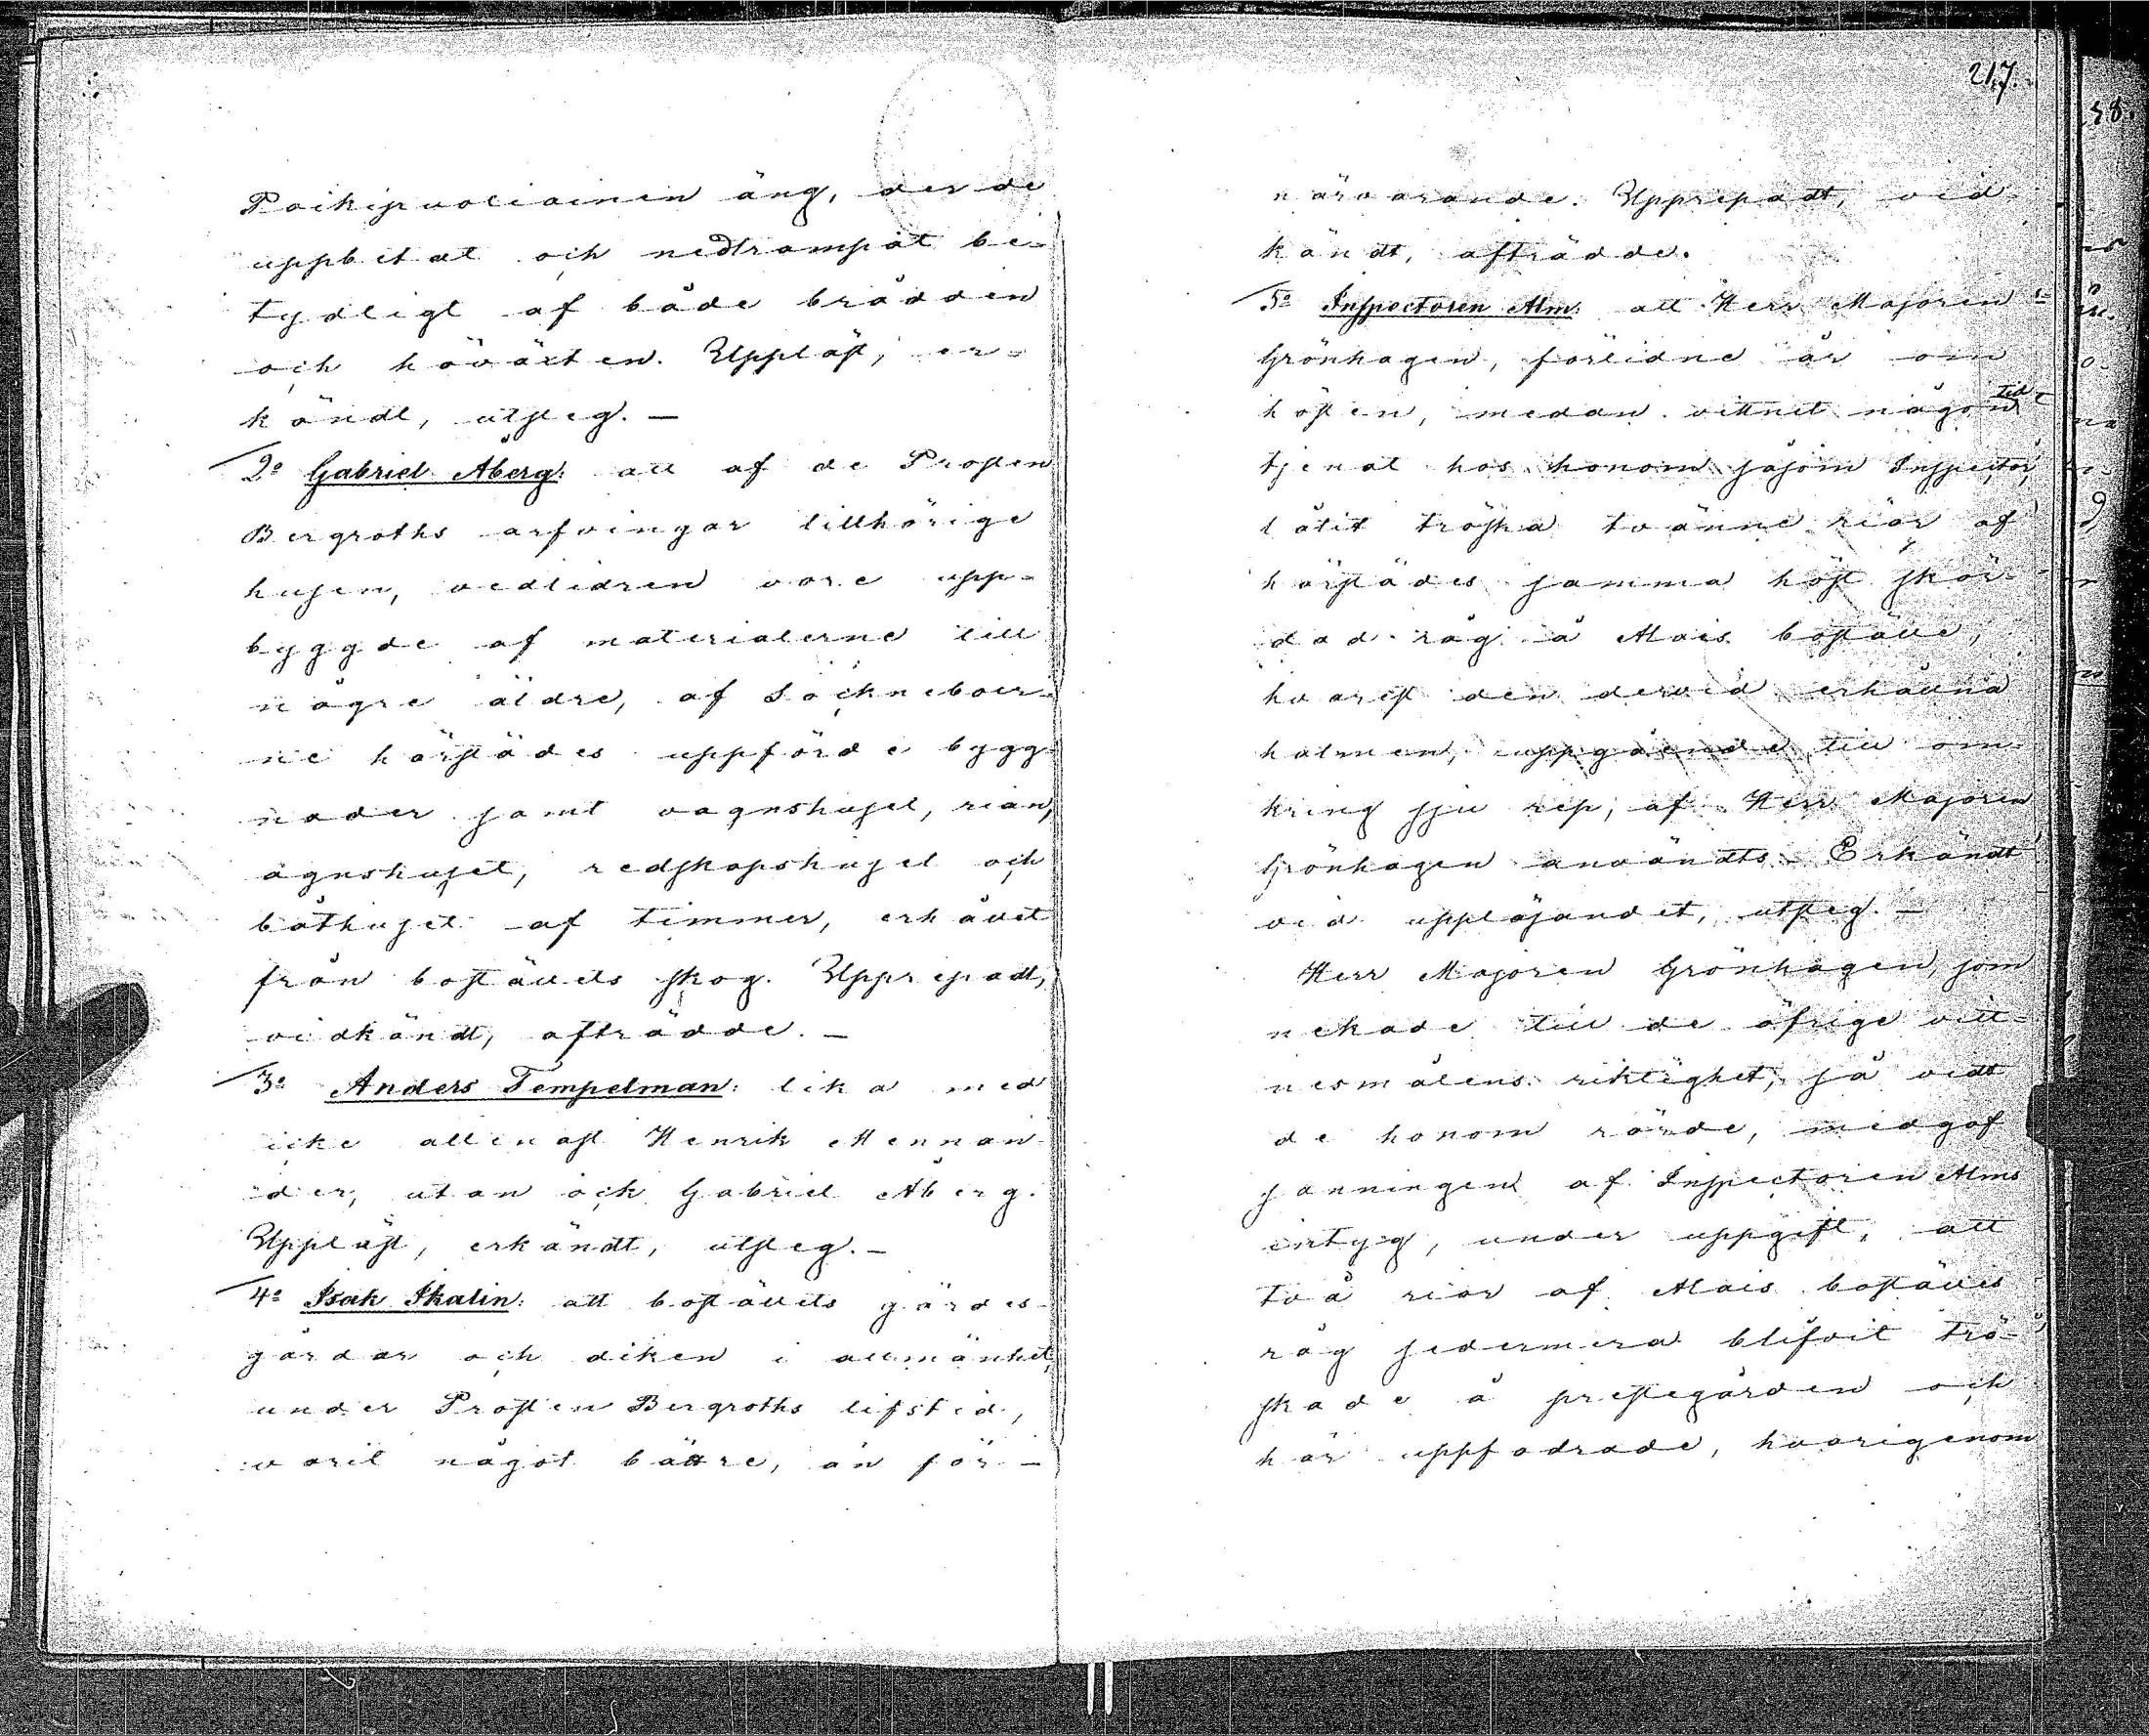 Poikipuoliainen äng, der de
uppbetat och nedtrampat be-
tydligt af både brådden
och höväxten. Uppläst, er-
kändt, utsteg. —
2o Gabriel Åberg: att af de Prosten
Bergroths arfvingar tillhörige
husen, vedlidren vore upp-
byggde af materialerne till
någre äldre, af Sockneboer-
ne härstädes uppförde bygg-
nader samt vagnshuset, rian,
agnshuset, redskapshuset och
båthuset af timmer, erhållit
från boställets skog. Upprepadt,
vidkändt, afträdde. —
3o Anders Tempelman: lika med
icke allenast Henrik Mennan-
der, utan ock Gabriel Åberg.
Uppläst, erkändt, utsteg. —
4o Isak Skalin: att boställets gärdes-
gårdar och diken i allmänhet,
under Prosten Bergroths lifstid,
varit något bättre, än för-
217.
närvarande. Upprepadt, vid-
kändt, afträdde.
5o Inspectoren Alm: att Herr Majoren
Grönhagen, förlidne år om
hösten, medan vittnet någon tid
tjenat hos honom såsom Inspector,
låtit tröska tvänne rior af
härstädes samma höst skör-
dad råg å Alais boställe,
hvarest den dervid erhållna
halmen, uppgående till om-
kring sju rep, af Herr Majoren
Grönhagen användts. Erkändt
vid uppläsandet, utsteg. —
Herr Majoren Grönhagen, som
nekade till de öfrige vitt-
nesmålens riktighet, så vidt
de honom rörde, medgaf
sanningen af Inspectoren Alms
intyg, under uppgift, att
två rior af Alais boställes
råg sedermera blifvit trö-
skade å prestegården och
här uppfodrade, hvarigenom
58.